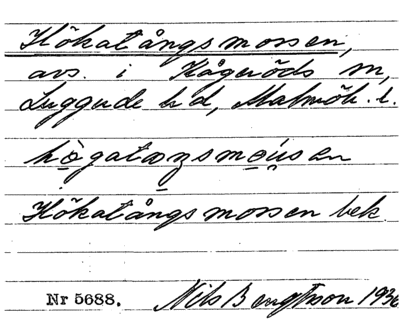 Hökatångsmossen,
avs. i Kågeröds sn,
Luggude hd, Malmöh. l.
hògatåŋsmoúsen
Hökatångsmossen bek.
Nr 5688. Nils Bengtsson 1936